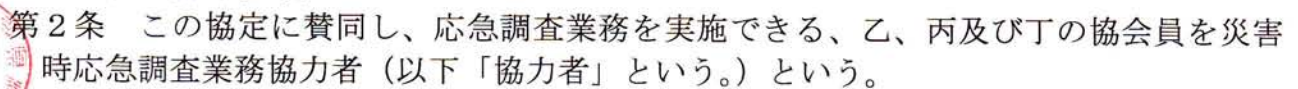 第2条　この協定に賛同し、応急調査業務を実施できる、乙、丙及び丁の協会員を災害
時応急調査業務協力者（以下「協力者」という。）という。